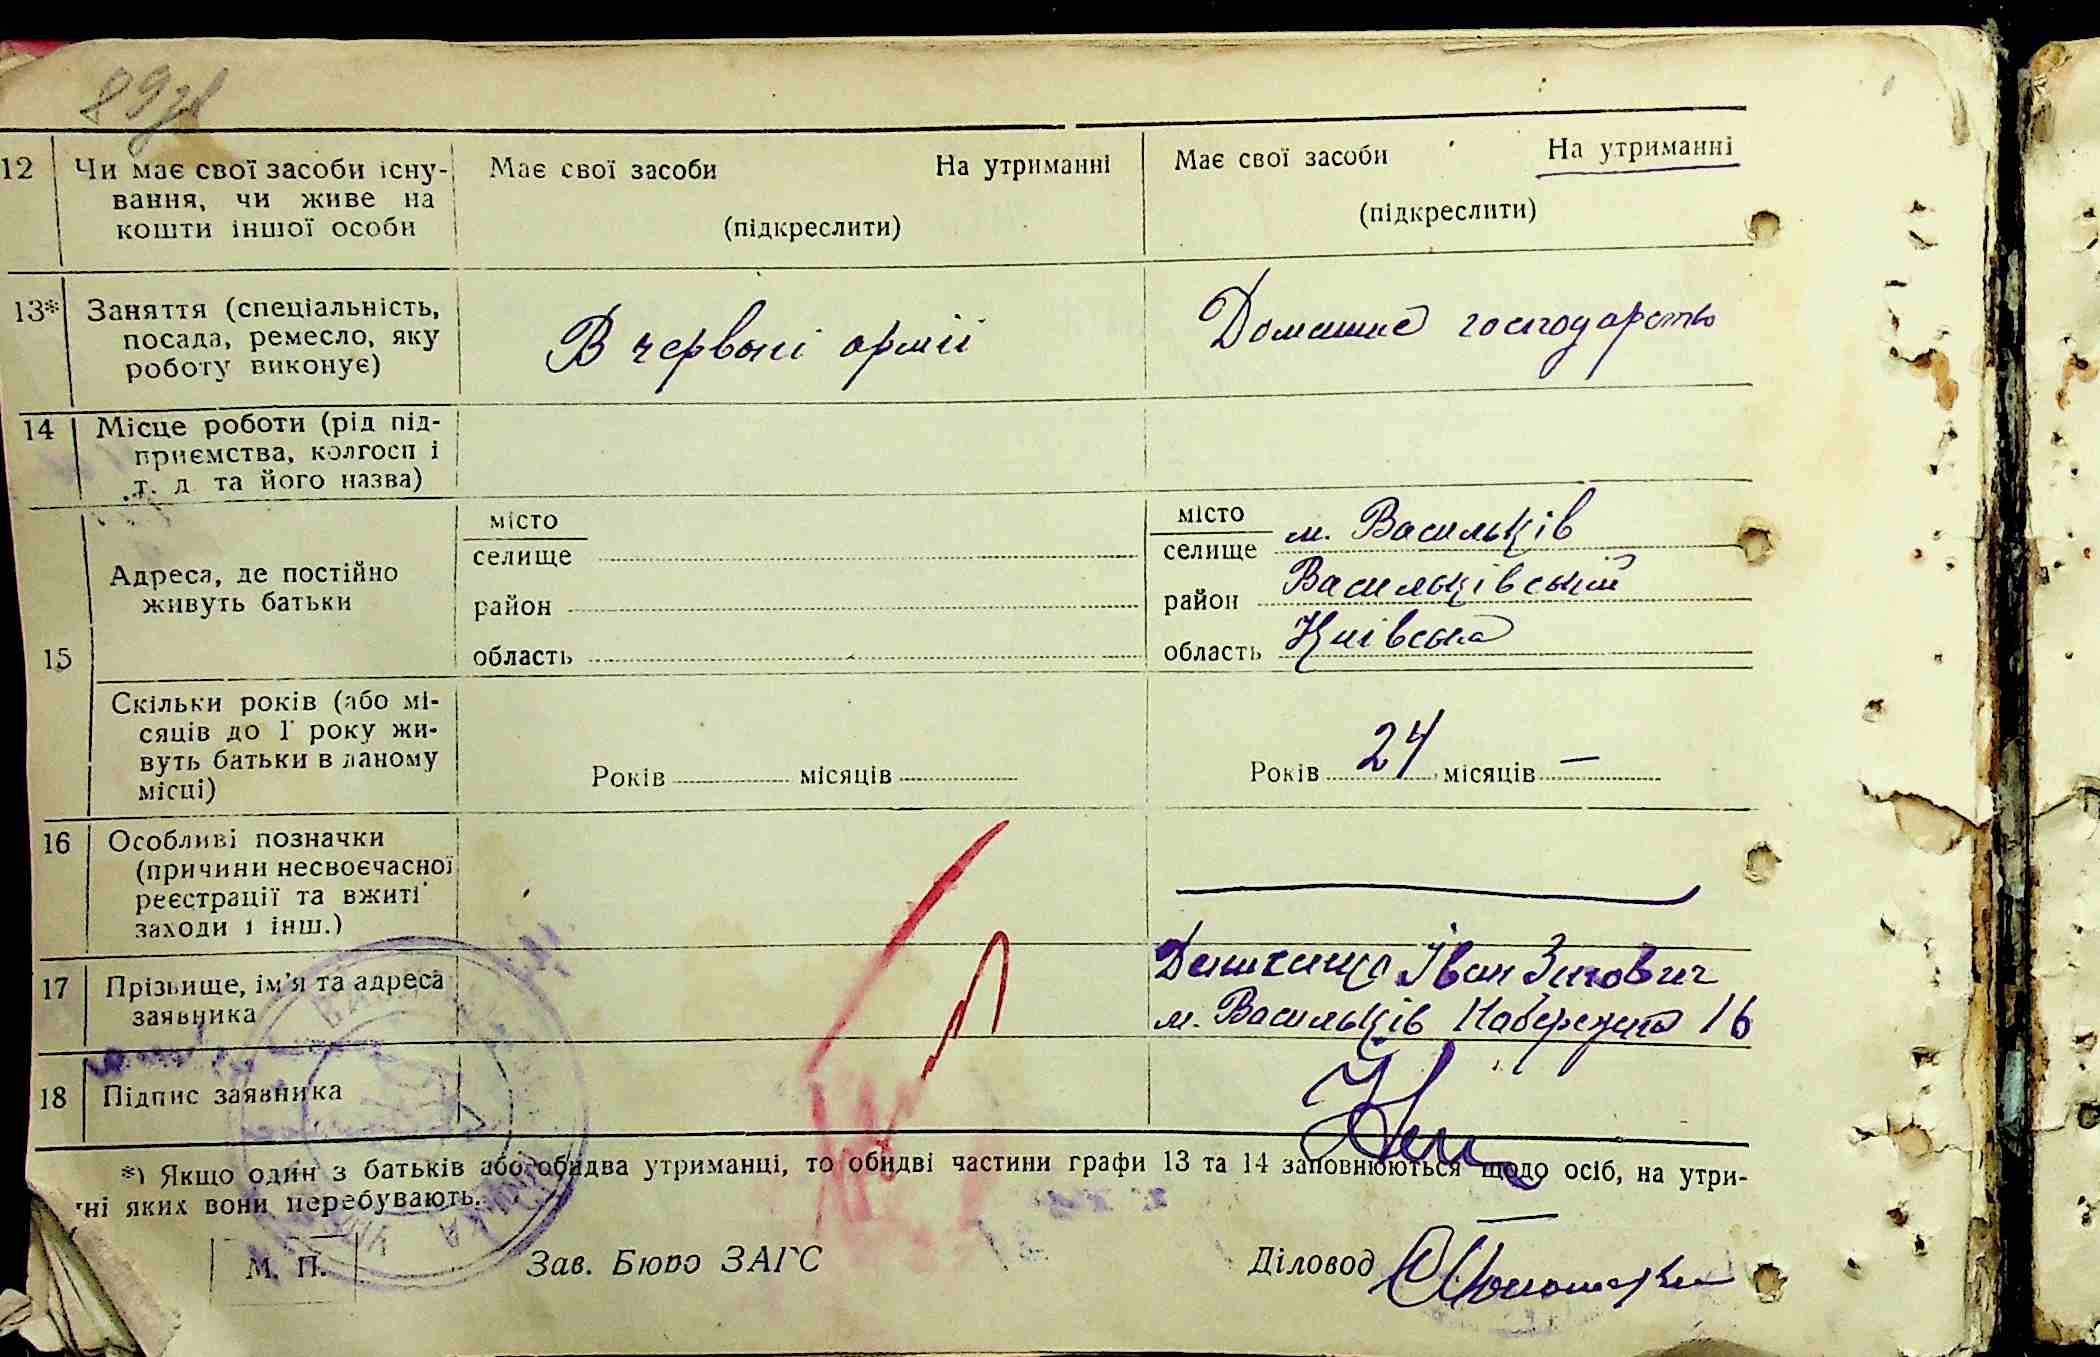 12 Чи має свої засоби існу- Має свої засоби На утриманні Має свої засоби На утриманні
вання, чи живе на
кошти іншої особи (підкреслити) (підкреслити)
13* Заняття (спеціальність,
посада, ремесло, яку В червоні армії Домашнє господарство
роботу виконує)
14 Місце роботи (рід під-
приємства, колгосп і
т. д. та його назва)
15 Адреса, де постійно
живуть батьки
місто
селище
район
область
місто
селище м. Васильків
район Васильківський
область Київська
Скільки років (або мі-
сяців до 1 року жи-
вуть батьки в даному
місці)
Років місяців Років 24 місяців —
16 Особливі позначки
(причини несвоєчасної
реєстрації та вжиті
заходи і інш.)
17 Прізвище, ім'я та адреса Іван
заявника м. Васильків Набережна 16
18 Підпис заявника
*) Якщо один з батьків або обидва утриманці, то обидві частини графи 13 та 14 заповнюються щодо осіб, на утри-
ні яких вони перебувають.
М. П. Зав. Бюро ЗАГС Діловод